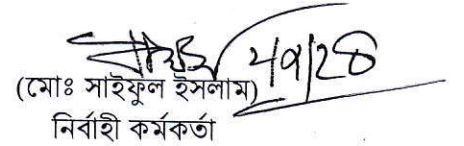 (মোঃ সাইফুল ইসলাম)
নির্বাহী কর্মকর্তা